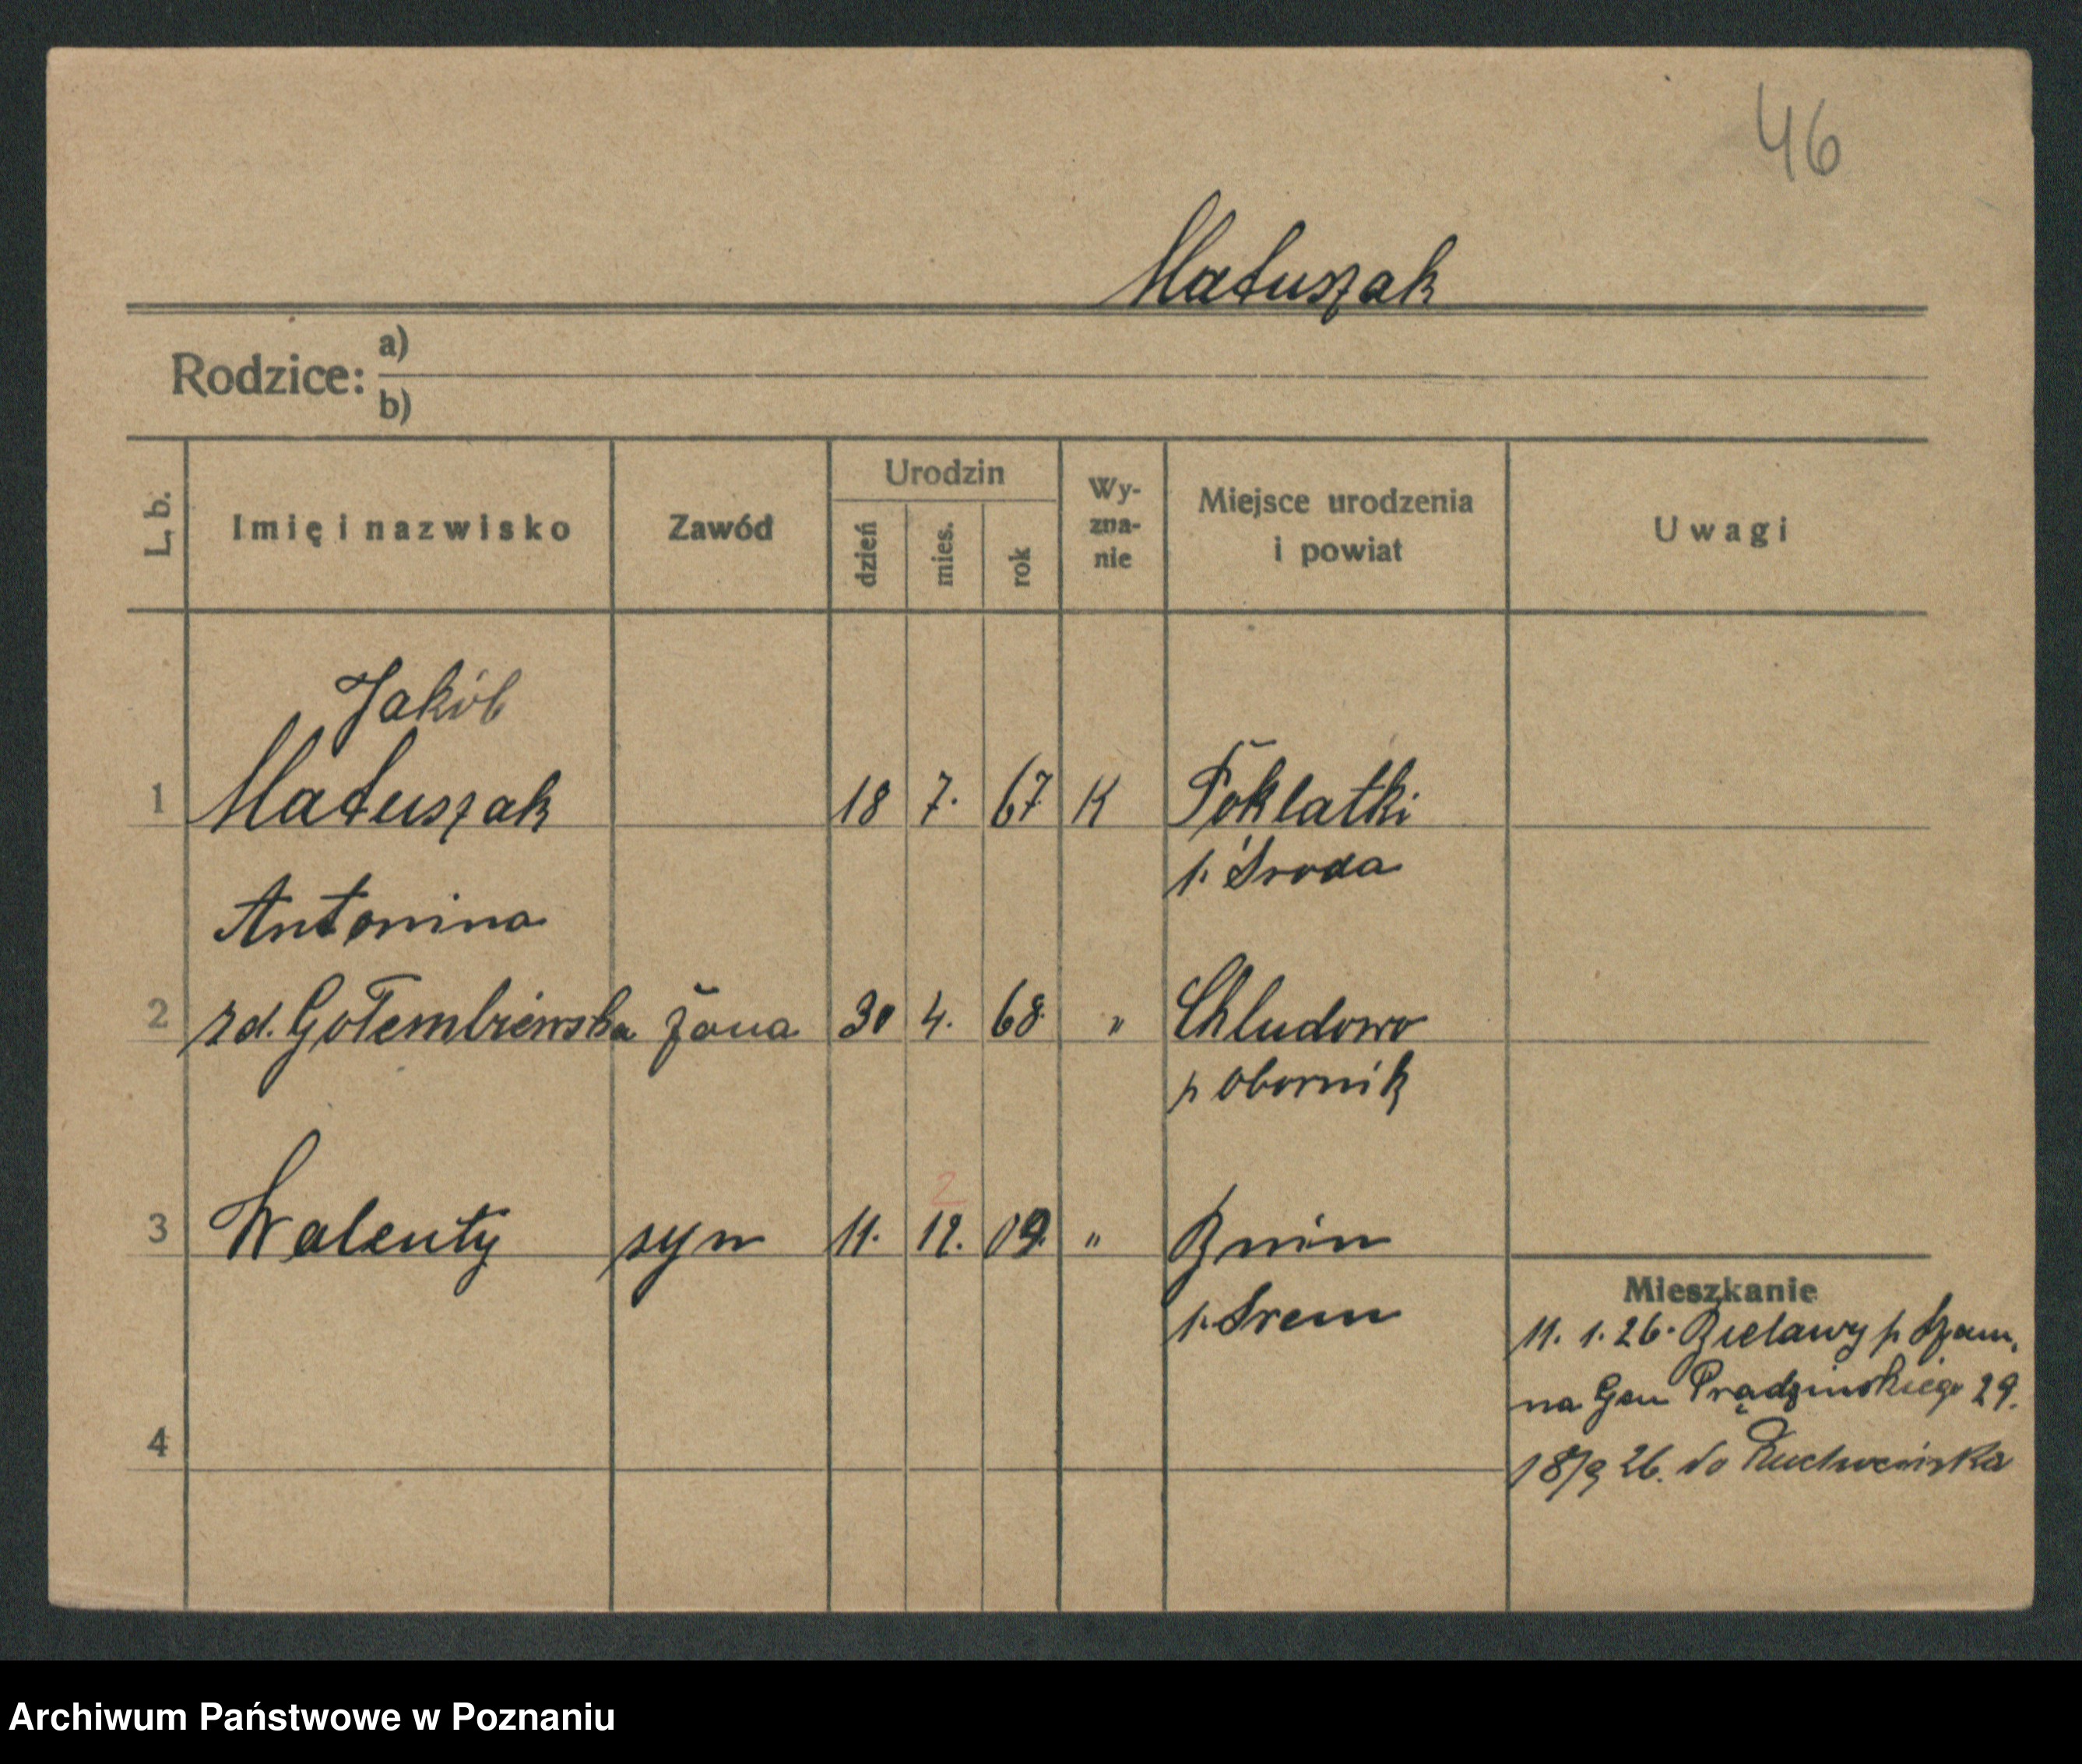 46
Matuszak
Rodzice: a)
b)
L. b.
Imię i nazwisko
Zawód
Urodzin
dzień
mies.
rok
Wy-
zna-
nie
Miejsce urodzenia
i powiat
Uwagi
Jakób
1 Matuszak 18 7. 67 K Poklatki
p. Środa
Antonina
2 rd. Gołembiewska żona 30 4. 68 " Chludowo
p Obornik
2
3 Walenty syn 11. 12. 09. " Bnin
p. Śrem
Mieszkanie
11. 1. 26. Bielawy p Szam.
na Gen Prądzinskiego 29.
4
18/9 26. do
Archiwum Państwowe w Poznaniu